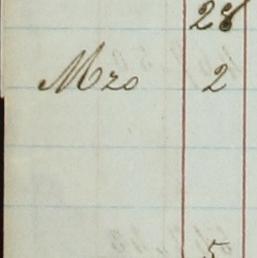 28
Mzo 2
5